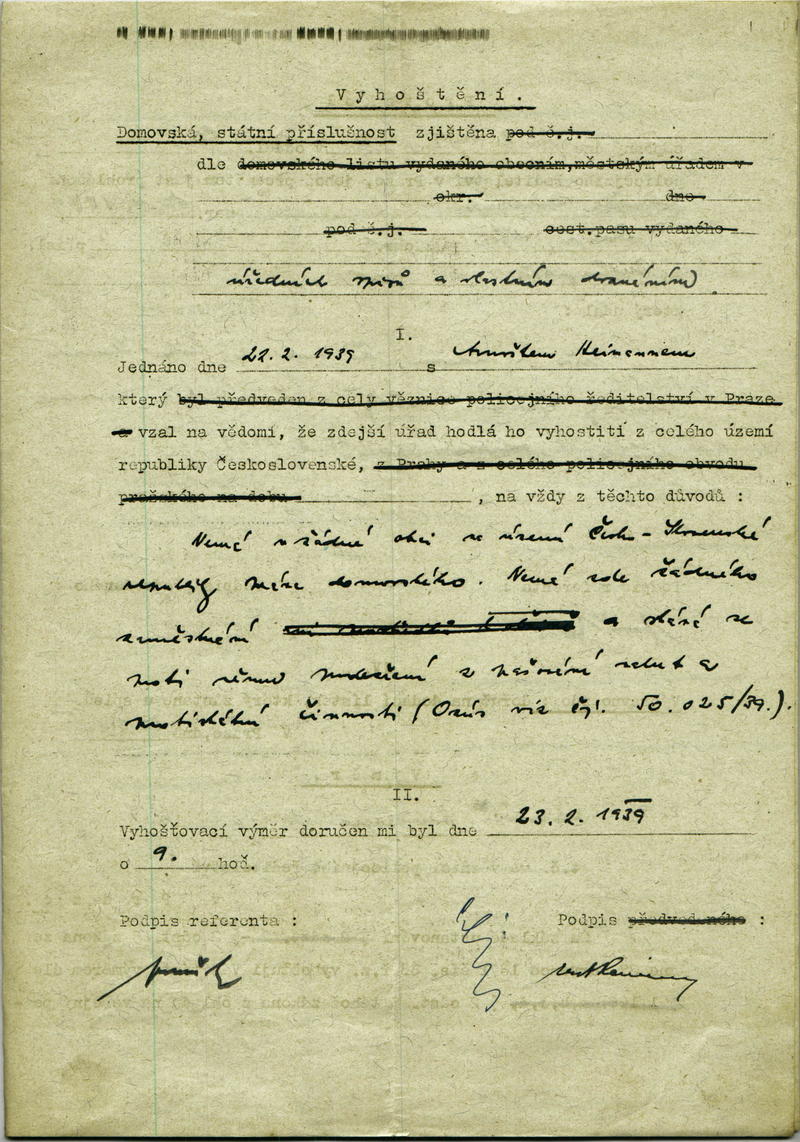 Vyhoštění.
Domovská, státní příslušnost zjištěna pod č.j.
dle domovského listu vydaného obecním, městským úřadem v
okr. dne
pod č.j. cest.pasu vydaného
úředních spisů a vlastním doznáním
I.
Jednáno dne 22.2.1939 s Arnoštem Heimannem
který byl předveden z cely věznice policejního ředitelství v Praze
a vzal na vědomí, že zdejší úřad hodlá ho vyhostiti z celého území
republiky Československé, z Prahy a z celého policejního obvodu
pražského na dobu , na vždy z těchto důvodů :
Nemá v žádné obci na území Česko-Slovenské
republiky práva domovského. Nemá zde žádného
zaměstnání a stává se
proti němu podezření z pašování valut a
protistátní činnosti ( viz čj. 50.025/39.).
II.
Vyhošťovací výměr doručen mi byl dne 23.2.1939
o 9. hod.
Podpis referenta : Podpis předvedeného :